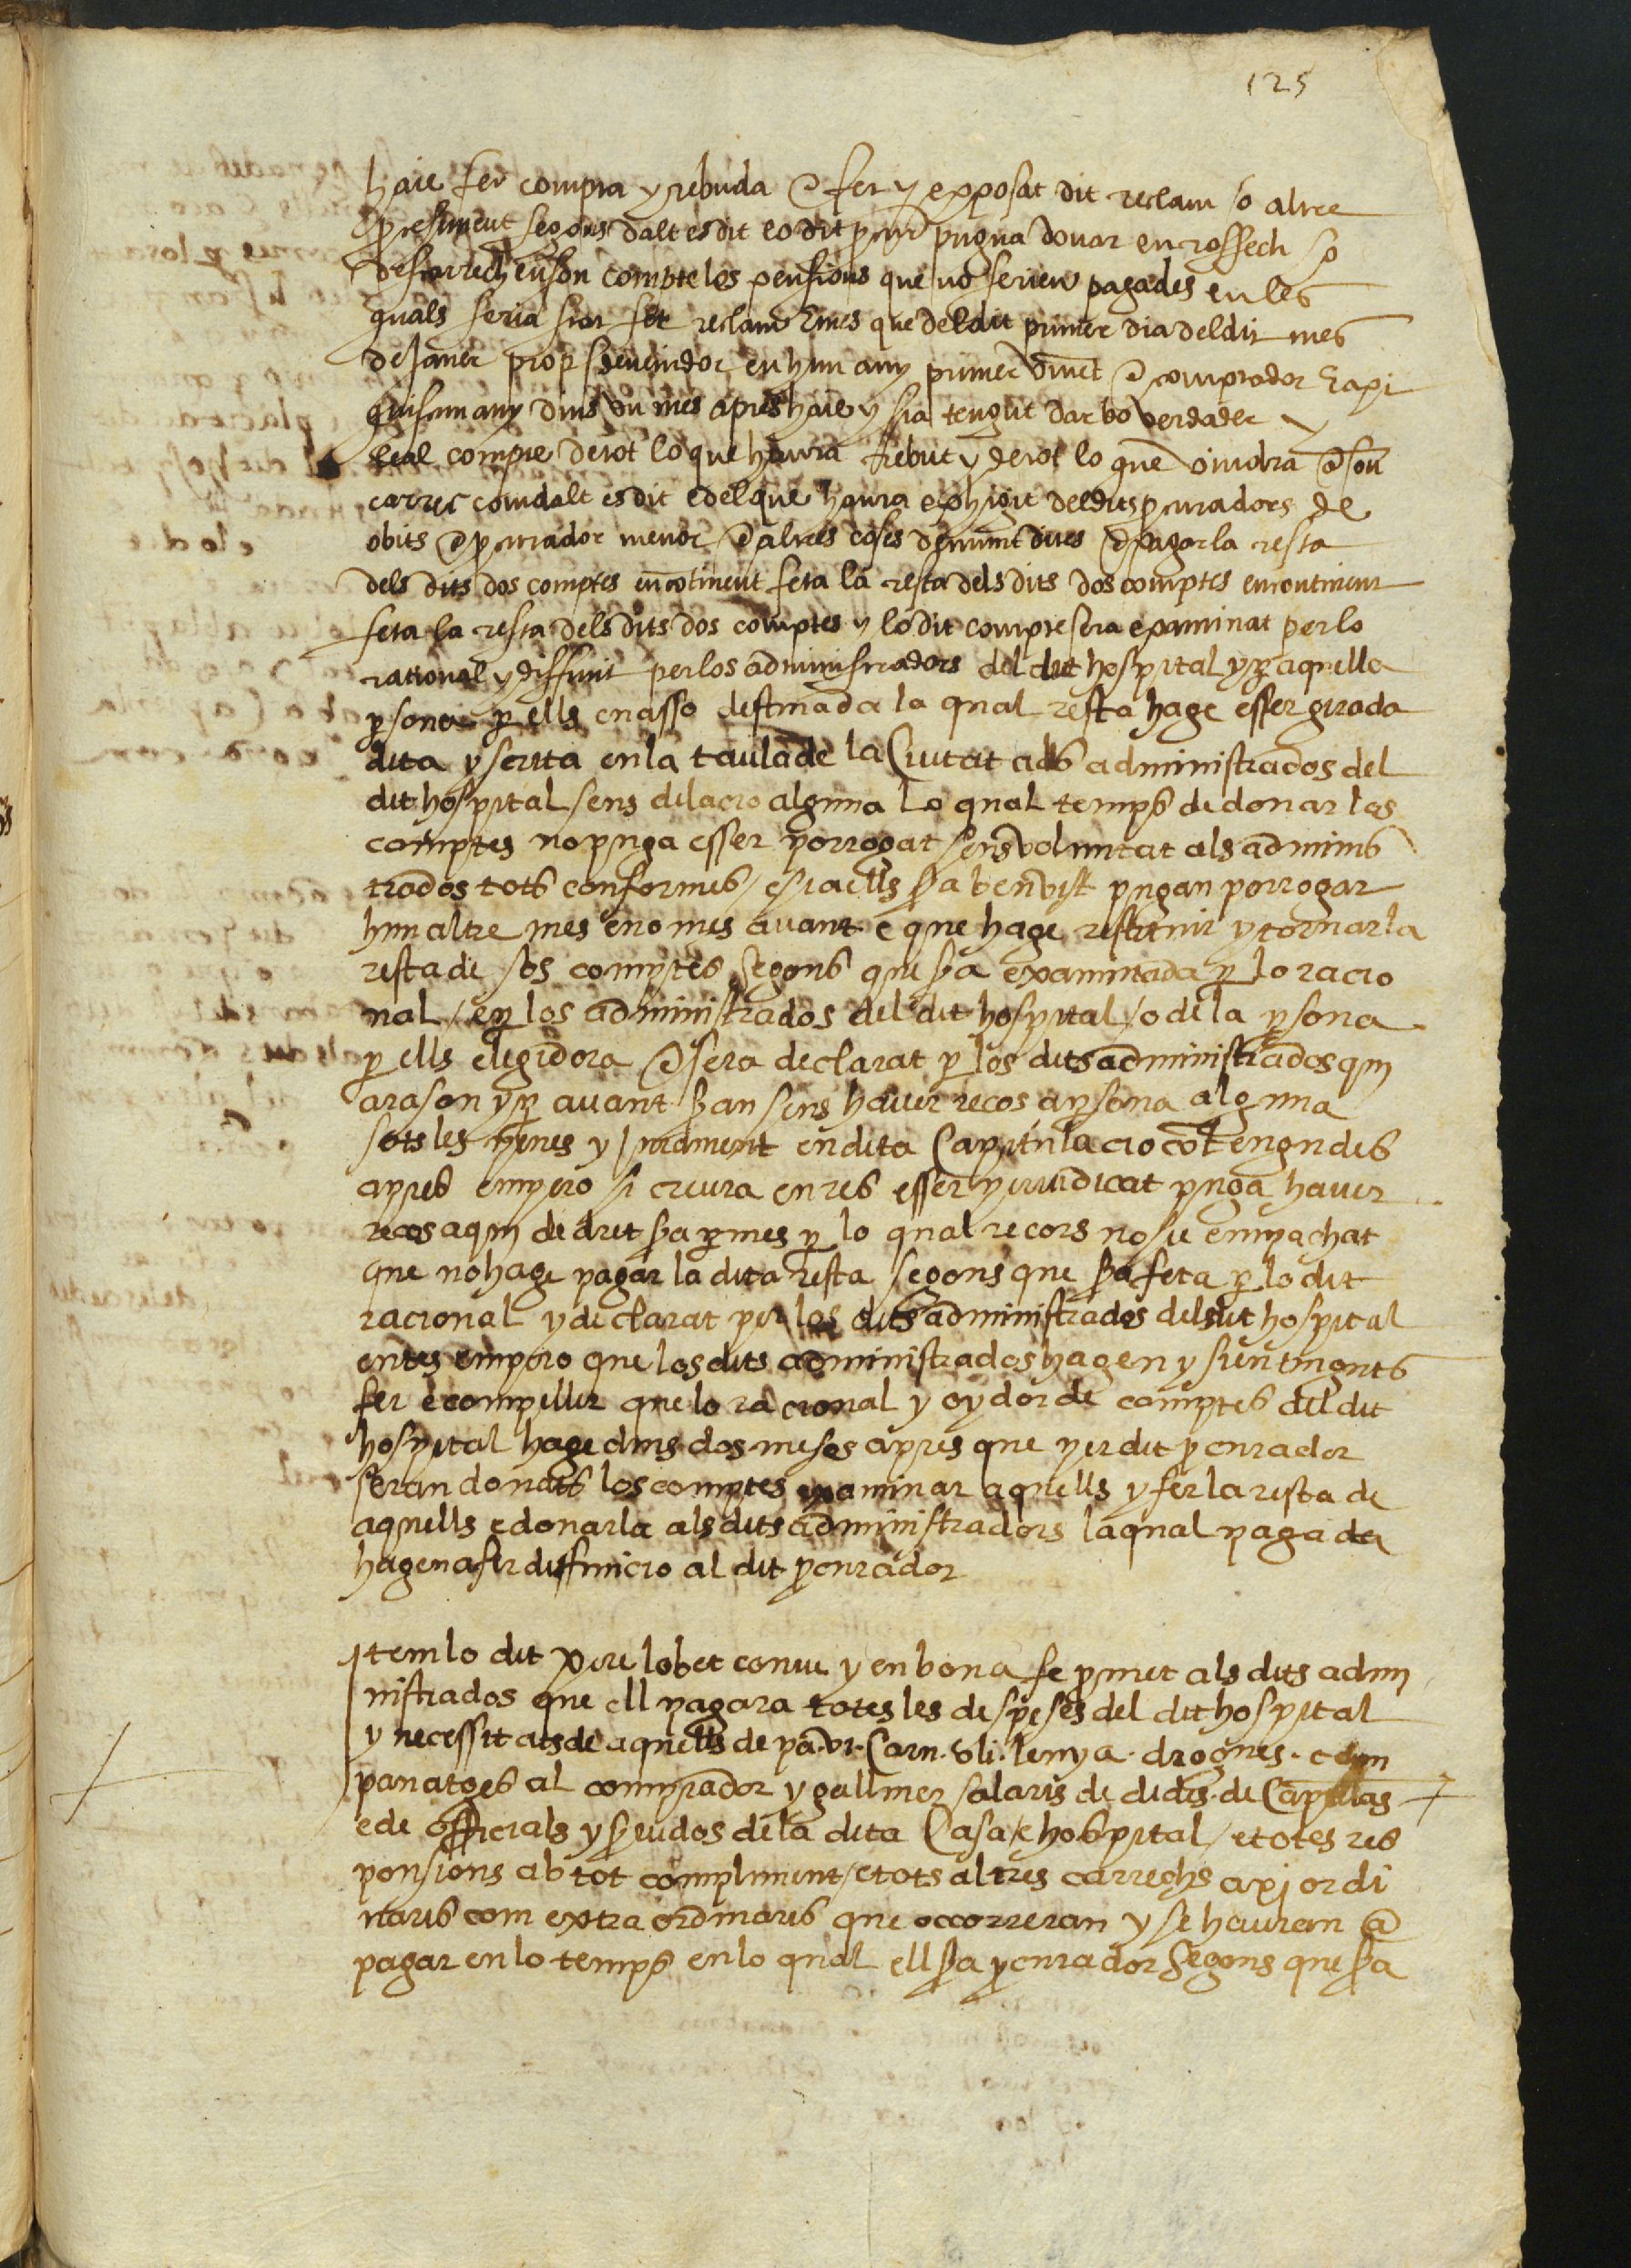 125
haie fer compra y rebuda e fer y exposat dit reclam o altre
segons dalt es dit lo dit pugua donar en rossech o
descarrech en son compte les pensions que no serien pagades en les
quals seria stat fet reclam Emes que del dit primer dia del dit mes
de Janer prop sdevenidor en hun any primer vinet e comptador E axi
quiscun any dins du mes apres haie y sia tengut dar bo verdader y
leal compte de tot lo que haura rebut y de tot lo que vindra a son
carrec com dalt es dit e del que haura exhigit dels dits pcuradors de
obits e pcurador menor e altres coses demunt dites e pagar la resta
dels dits dos comptes encotinent feta la resta dels dits dos comptes encontinent
feta la resta dels dits dos comptes y lo dit compte sera examinat per lo
rational y diffinit per los administradors del dit hospital y p aquella
psona p ells en asso destinada la qual resta hage esser girada
dita y scrita en la taula de la Ciutat als administrados del
dit hospital sens dilacio alguna Lo qual temps de donar los
comptes no puga esser porrogat sens voluntat als adminis
trados tots conformes / e si a ells sa ben vist pugan porrogar
hun altre mes e no mes avant e que hage restituir y tornar la
resta de sos comptes segons que sa examinada p lo racio
nal / e p los administrados del dit hospital / o de la psona
p ells elegidora e sera declarat p los dits administrados qui
ara son y p avant san sens haver recos a psona alguna
sots les penes y jurament en dita Capitulacio cotengudes
apres empero si creura en res esser periudicat puga haver
recos a qui de dret sa pmes p lo qual recors no sie empachat
que no hage pagar la dita resta segons que sa feta p lo dit
racional y declarat per los dits administrados del dit hospital
entes empero que los dits administrados hagen y sien tinguts
fer e compellir que lo racional y oydor de comptes del dit
hospital hage dins dos mesos apres que per dit pcurador
seran donats los comptes examinar aquells y fer la resta de
aquells e donarla als dits administradors la qual pagada
hagen a fer difinicio al dit pcurador
Item lo dit pere lobet conve y en bona fe pmet als dits admi
nistrados que ell pagara totes les despeses del dit hospital
y necessitats de aquells de pa. vi. Carn. oli. lenya. drogues. com
panatges al comprador y galliner salaris de dides. de Capellas
e de officials y sevidos de la dita Casa / e hospital / e totes res
ponsions ab tot compliment / e tots altres carrechs axi ordi
naris com extraordinaris que occorreran y se hauran a
pagar en lo temps en lo qual ell sa pcurador segons que sa